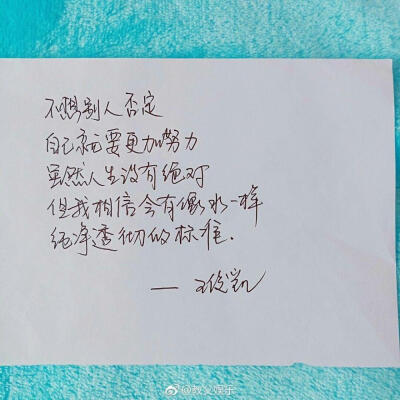 不想别人否定
自己就要更加努力
虽然人生没有绝对
但我相信会有像水一样
纯净透彻的标准.
— 王俊凯
@教父娱乐